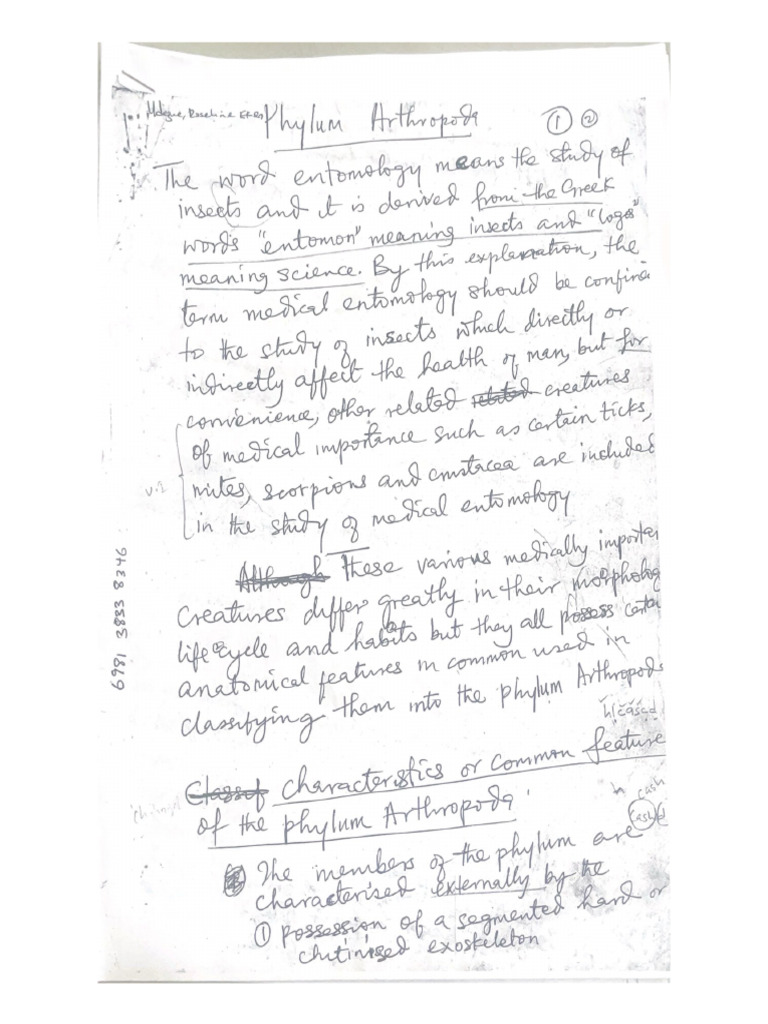 Phylum Arthropoda ① ②
The word entomology means the study of
insects and it is derived from the Greek
words "entomon" meaning insects and "logos"
meaning science. By this explanation, the
term medical entomology should be confined
to the study of insects which directly or
indirectly affect the health of man, but for
convenience, other related related creatures
of medical importance such as certain ticks,
mites, scorpions and crustacea are included
in the study of medical entomology
Although These various medically importan
creatures differ greatly in their morpholog
life cycle and habits but they all possess certain
anatomical features in common used in
classifying them into the phylum Arthropoda
Classif characteristics or common feature
of the phylum Arthropoda
The members of the phylum are
characterised externally by the
① possession of a segmented hard or
chitinised exoskeleton
6981 3833 8346
cash